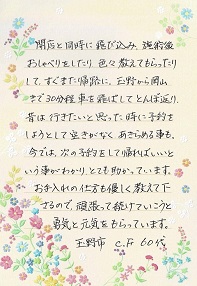 開店と同時に飛び込み、施術後
おしゃべりをしたり、色々教えてもらったり
して、すぐまた帰路に、玉野から岡山
まで30分程車を飛ばしてとんぼ返り。
昔は行きたいと思った時に予約を
しようとして空きがなく、あきらめる事も。
今では、次の予約をして帰ればいいと
いう事がわかり、とても助かっています。
お手入れの仕方も優しく教えて下
さるので、頑張って続けていこうと
勇気と元気をもらっています。
玉野市 C.F 60代